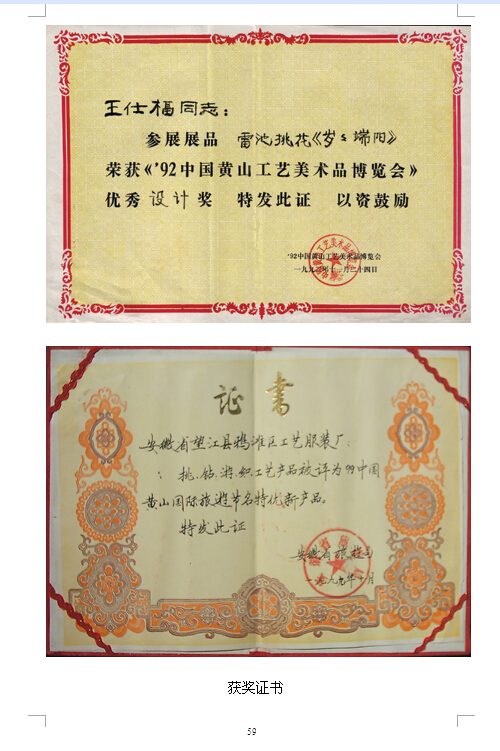 王仕福同志：
参展展品 雷池挑花《岁岁端阳》
荣获《’92中国黄山工艺美术品博览会》
优秀设计奖 特发此证 以资鼓励
’92中国黄山工艺美术品博览会
一九九二年十一月二十四日
证书
安徽省望江县鸦滩区工艺服装厂：
挑、钻、游、织工艺产品被评为99中国
黄山国际旅游节名特优新产品。
特发此证
安徽省旅游
一九九九年十月
获奖证书
59